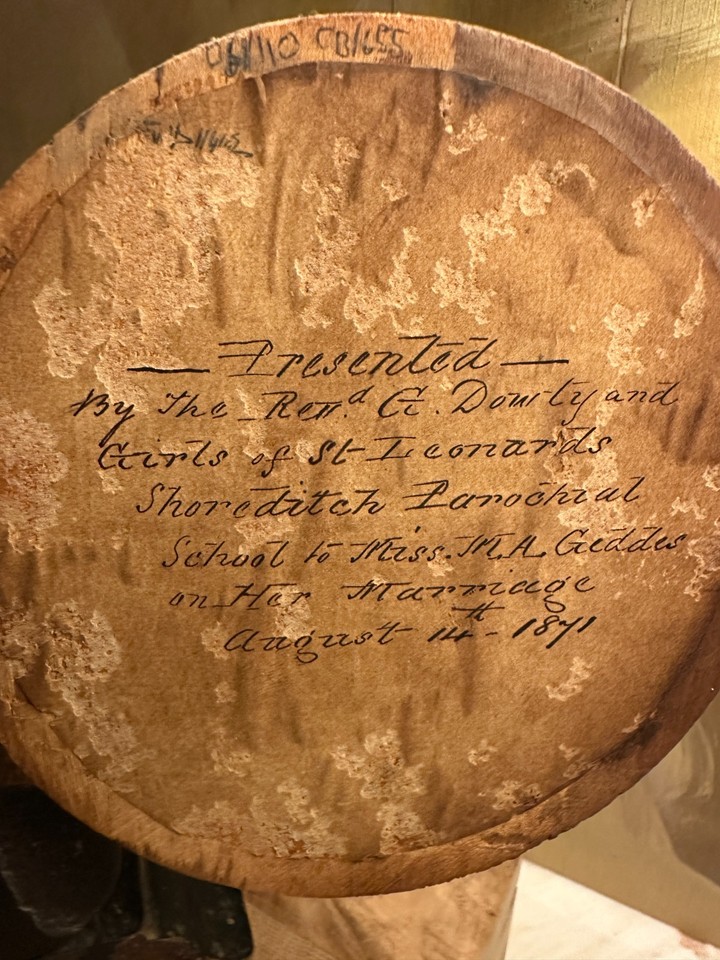 — Presented —
By The Revd. G. Dowty and
Girls of St Leonards
Shoreditch Parochial
School to Miss. M.A. Geddes
on Her Marriage
August 14th - 1871